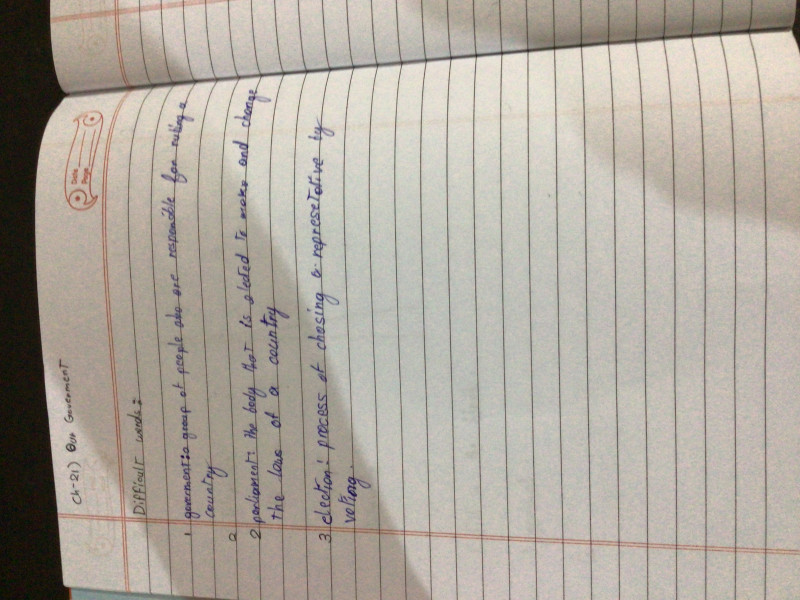 Date
Page
Ch-21) Our Government
Difficult words:
1 goverment: a group of people who are responsible for ruling a
country
2
2 parliament: the body that is elected to make and change
the law of a country
3 election: process of chosing a represetative by
voting.